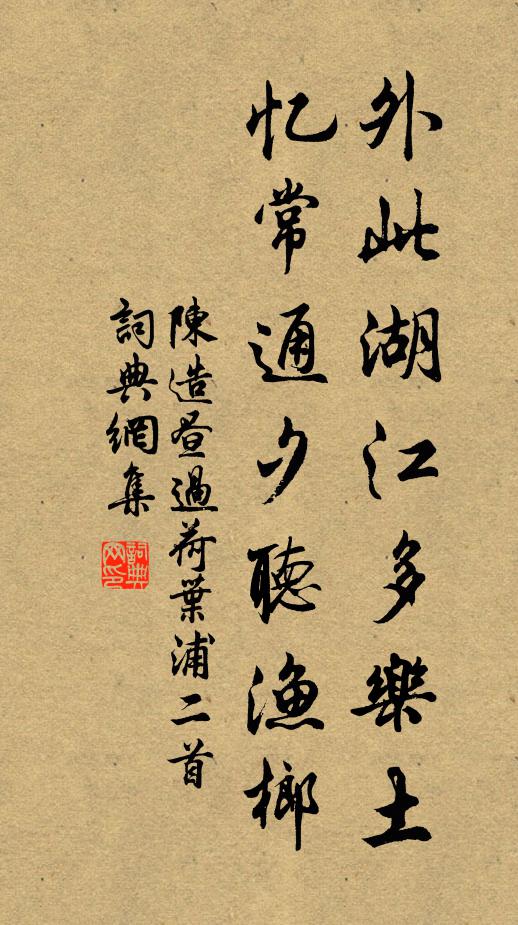 外此湖江多樂土
忆常通夕聽漁榔
陳造昼過荷葉浦二首
詞典網集
詞典网印